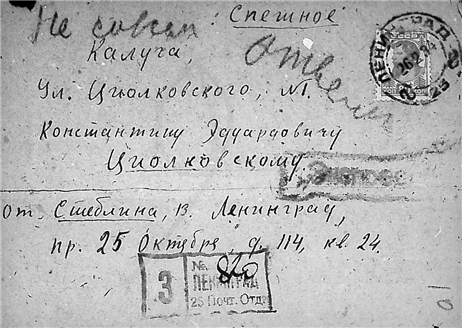 Спешное
Не совсем
Калуга,
Ответил
ул. Циолковского, №1.
Константину Эдуардовичу
Циолковскому
От. Стеблина, В. Ленинград,
пр. 25 Октября, д. 114, кв. 24.
З
№ 820
ЛЕНИНГРАД
25 Почт. Отд.